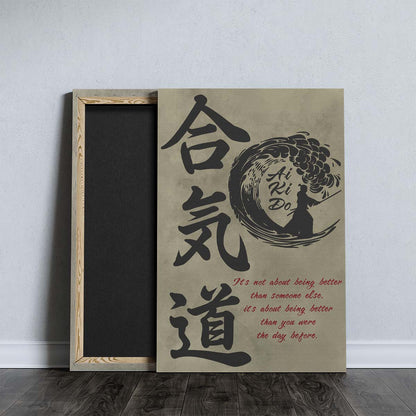 合
気
道
Ai
Ki
Do
It's not about being better
than someone else.
it's about being better
than you were
the day before.